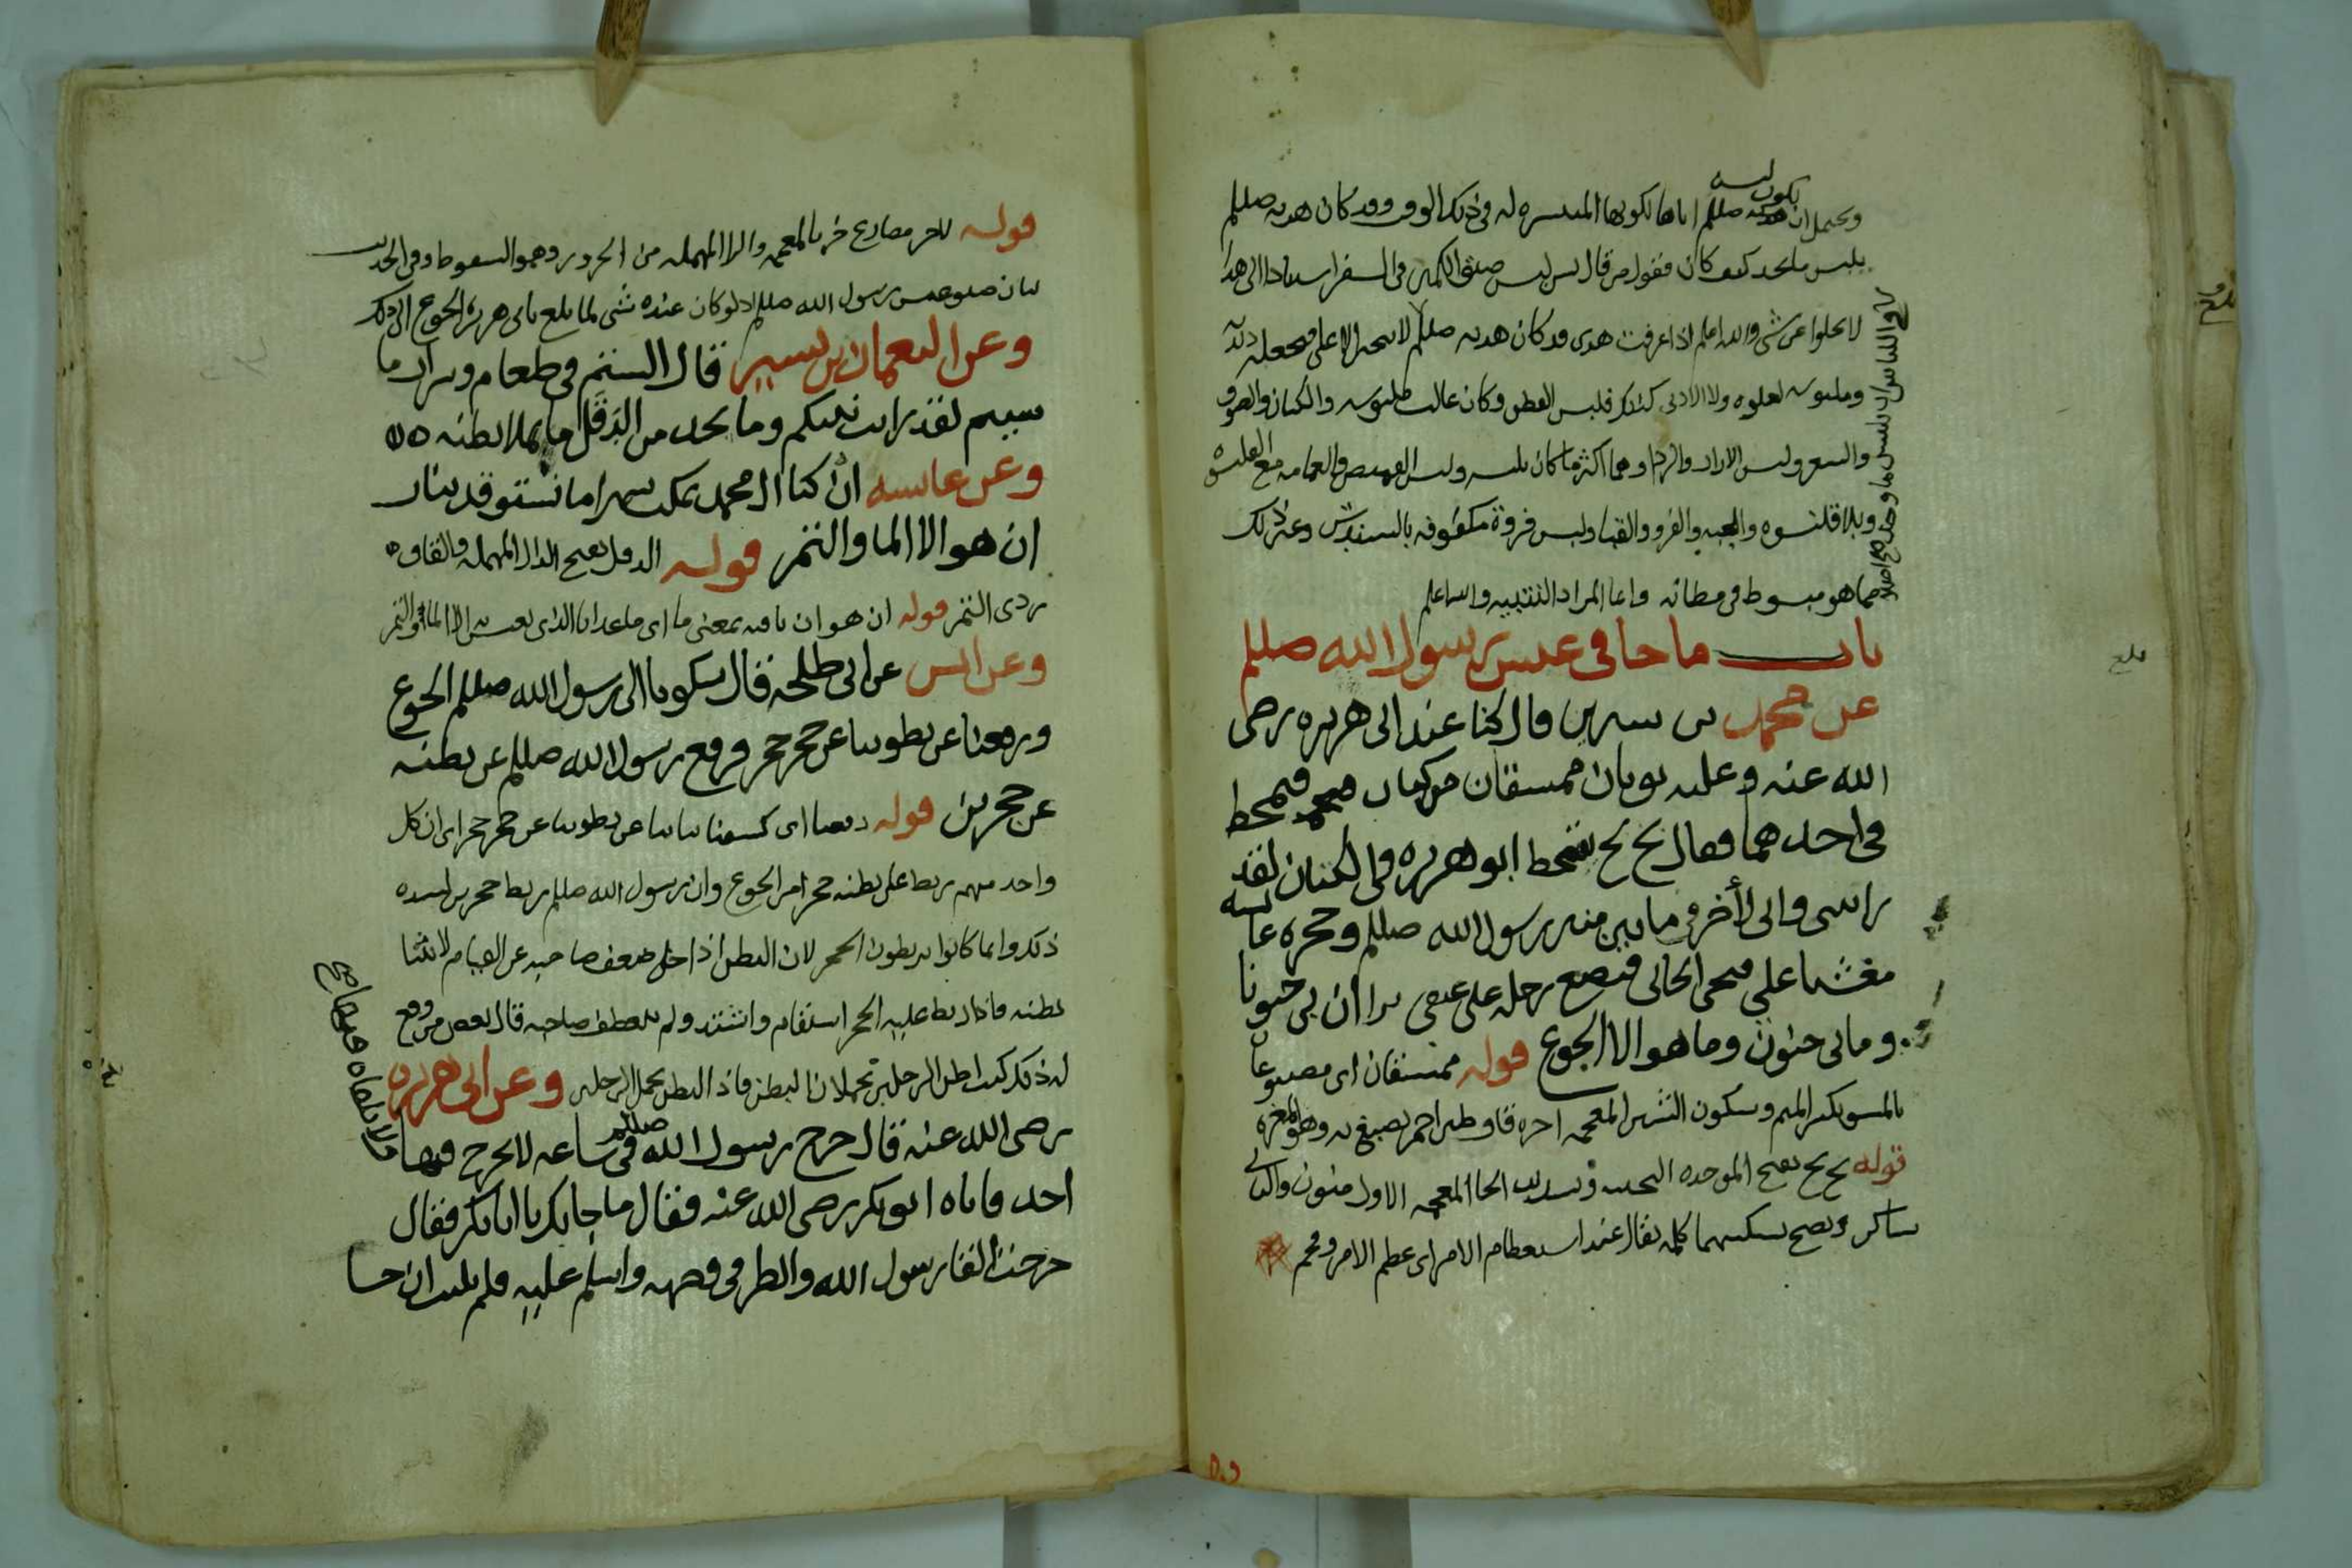 ويحتمل ان يكون لبسه صللم اياها لكونها المتيسره له في ذلك الوقت وقد كان هديه صللم
يلبس ما يجد كيف كان فنقول من قال لبس ضيق الكمين في السفر استنادا الى هذا
لا يخلوا عن شي والله اعلم اذا عرفت هدى قد كان هديه صللم لا يتحرا الاعلى فيجعله ديدنه
وملبوسه لعلوه ولا الادنى كذلك فلبس القطن وكان غالب ملبوسه والكتان والصوف
والشعر ولبس الازار والردا وهما اكثر ما كان يلبسه ولبس القميص والعمامه مع القلنسوه
وبلا قلنسوه والجبه والفرو والقبا ولبس فروة مكفوفه بالسندس وغير ذلك
مما هو مبسوط في مظانه وانما المراد التنبيه والله اعلم
باب ما جا في عيش رسول الله صللم
عن محمد بن سيرين قال كنا عند ابي هريره رضى
الله عنه وعليه ثوبان ممشقان من كتان فتمخط
في احدهما فقال بخ بخ يتمخط ابو هريره في الكتان لقد
رايتنى واني لأخر في ما بين منبر رسول الله صللم وحجره عايشه
مغشيا علي فيجي الجاي فيضع رجله على عنقي يرا ان بي جنونا
وما بي جنون وما هو الا الجوع قوله ممشقان اي مصبوغان
بالمشق بكسر الميم وسكون الشين المعجمه اخره قاف طين احمر يصبغ به وهو المغره
قوله بخ بخ بفتح الموحده التحتيه وتشديد الخا المعجمه الاول منون والثاني
ساكن ويصح تسكينهما كلمه تقال عند استعظام الامر اي عظم الامر وفخم
بلغ
قوله لاخر مضارع خر بالمعجمه والرا المهمله من الخرور وهو السقوط وفي الحديث
بيان ضيق عيش رسول الله صللم اذ لو كان عنده شي لما بلغ بابي هريره الجوع الى ذلك
وعن النعمان بن بشير قال الستم في طعام وشراب ما
شيتم لقد رايت نبيكم وما يجد من الدَقَل ما يملا بطنه
وعن عايشه ان كنا ال محمد نمكث شهرا ما نستوقد بنار
ان هو الا الما والتمر قوله الدقل بفتح الدال المهمله والقاف
ردي التمر قوله ان هو ان نافيه بمعنى ما اي ما غدانا الذي نعيش به الا الما والتمر
وعن انس عن ابي طلحه قال شكونا الى رسول الله صللم الجوع
ورفعنا عن بطوننا عن حجر حجر فرفع رسول الله صللم عن بطنه
عن حجرين قوله رفعنا اي كشفنا ثيابنا عن بطوننا عن حجر حجر اي ان كل
واحد منهم ربط على بطنه حجرا من الجوع وان رسول الله صللم ربط حجرين لشده
ذلك وانما كانوا يربطون الحجر لان البطن اذا خلى ضعف صاحبه عن القيام لانثنا
بطنه فاذا ربط عليه الحجر استقام واشتد ولم ينعطف صاحبه قال بعض من وقع
له ذلك كنت اظن الرجلين تحملان البطن فاذا البطن يحمل الرجلين وعن ابي هريره
رضى الله عنه قال خرج رسول الله صللم في ساعه لا يخرج فيها
ولا يلقاه فيها احد
احد فاتاه ابو بكر رضى الله عنه فقال ما جا بك يا ابا بكر فقال
خرجت القا رسول الله وانظر في وجهه واسلم عليه فلم يلبث ان جا